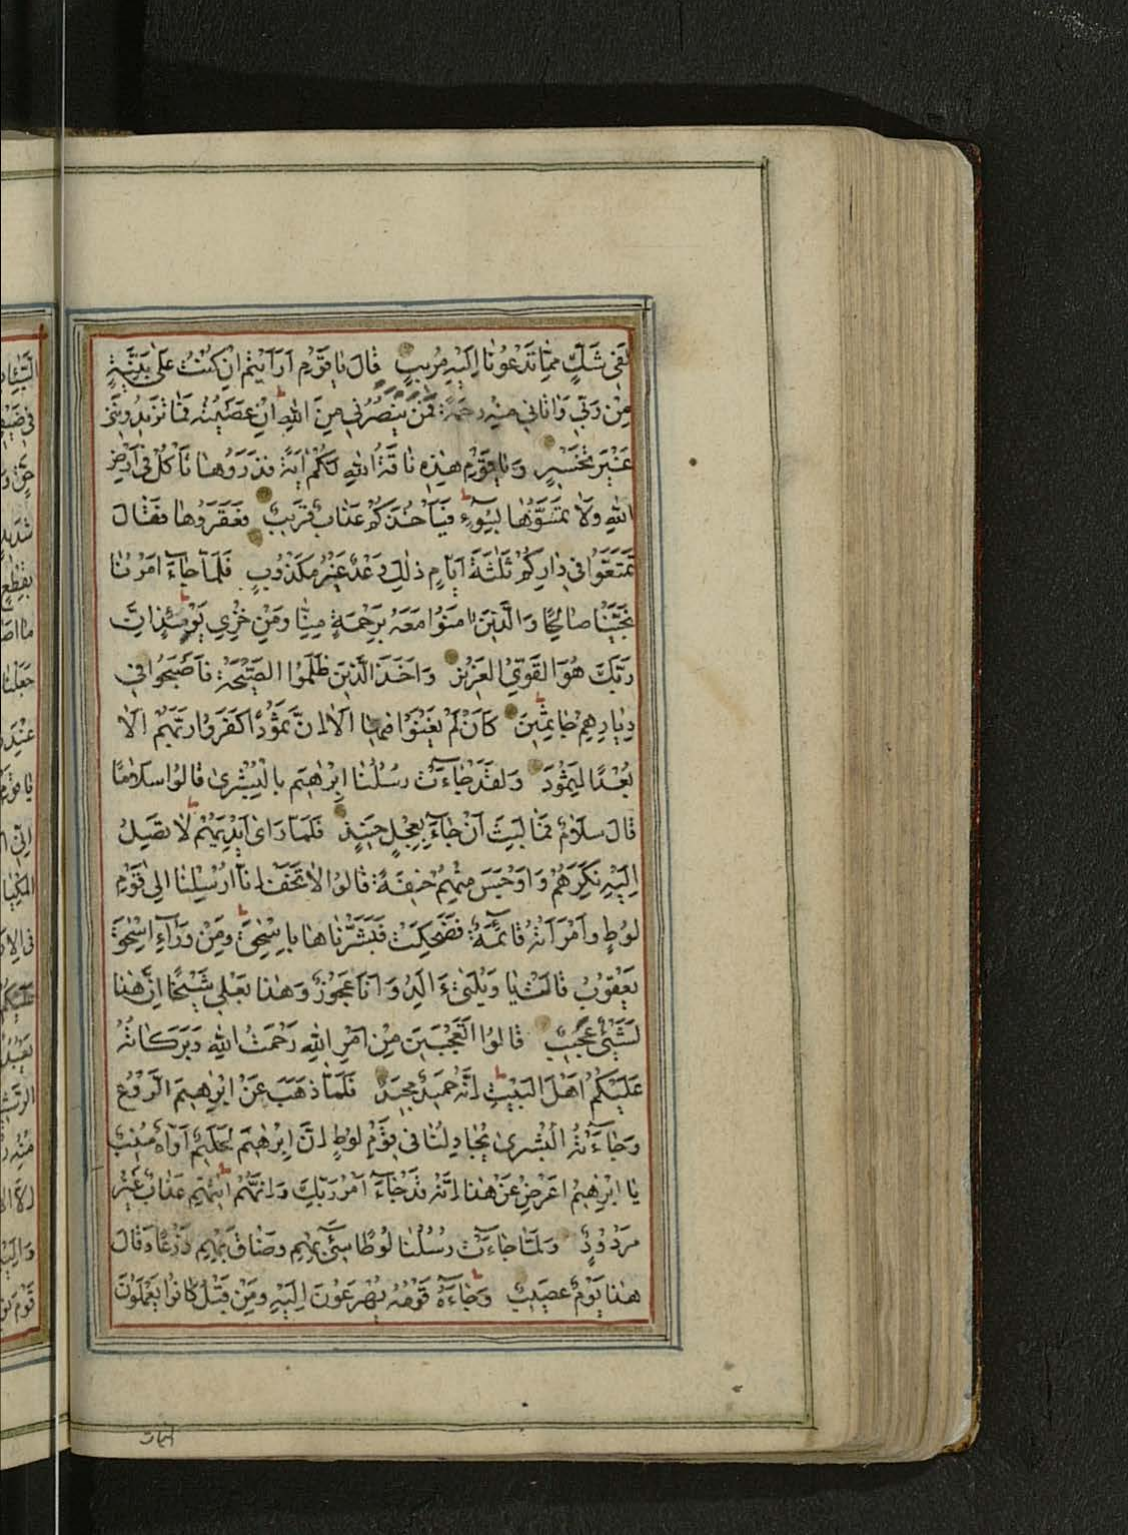 لَفِى شَكٍّ مِمَّا تَدْعُونَا اِلَيْهِ مُرِيبٍ قَالَ يَا قَوْمِ اَرَاَيْتُمْ اِنْ كُنْتُ عَلَى بَيِّنَةٍ
مِنْ رَبِّى وَاٰتَانِى مِنْهُ رَحْمَةً فَمَنْ يَنْصُرُنِى مِنَ اللهِ اِنْ عَصَيْتُهُ فَمَا تَزِيدُونَنِى
غَيْرَ تَخْسِيرٍ وَيَا قَوْمِ هٰذِهِ نَاقَةُ اللهِ لَكُمْ اٰيَةً فَذَرُوهَا تَأْكُلْ فِى اَرْضِ
اللهِ وَلَا تَمَسُّوهَا بِسُوءٍ فَيَأْخُذَكُمْ عَذَابٌ قَرِيبٌ فَعَقَرُوهَا فَقَالَ
تَمَتَّعُوا فِى دَارِكُمْ ثَلٰثَةَ اَيَّامٍ ذٰلِكَ وَعْدٌ غَيْرُ مَكْذُوبٍ فَلَمَّا جَاءَ اَمْرُنَا
نَجَّيْنَا صَالِحًا وَالَّذِينَ اٰمَنُوا مَعَهُ بِرَحْمَةٍ مِنَّا وَمِنْ خِزْىِ يَوْمِئِذٍ اِنَّ
رَبَّكَ هُوَ القَوِىُّ العَزِيزُ وَاَخَذَ الَّذِينَ ظَلَمُوا الصَّيْحَةُ فَاَصْبَحُوا فِى
دِيَارِهِمْ جَاثِمِينَ كَاَنْ لَمْ يَغْنَوْا فِيهَا اَلَا اِنَّ ثَمُودًا كَفَرُوا رَبَّهُمْ اَلَا
بُعْدًا لِثَمُودَ وَلَقَدْ جَاءَتْ رُسُلُنَا اِبْرٰهِيمَ بِالْبُشْرٰى قَالُوا سَلَامًا
قَالَ سَلَامٌ فَمَا لَبِثَ اَنْ جَاءَ بِعِجْلٍ حَنِيذٍ فَلَمَّا رَاٰى اَيْدِيَهُمْ لَا تَصِلُ
اِلَيْهِ نَكِرَهُمْ وَاَوْجَسَ مِنْهُمْ خِيفَةً قَالُوا لَا تَخَفْ اِنَّا اُرْسِلْنَا اِلٰى قَوْمِ
لُوطٍ وَامْرَاَتُهُ قَائِمَةٌ فَضَحِكَتْ فَبَشَّرْنَاهَا بِاِسْحٰقَ وَمِنْ وَرَاءِ اِسْحٰقَ
يَعْقُوبُ قَالَتْ يَا وَيْلَتٰى ءَاَلِدُ وَاَنَا عَجُوزٌ وَهٰذَا بَعْلِى شَيْخًا اِنَّ هٰذَا
لَشَىْءٌ عَجِيبٌ قَالُوا اَتَعْجَبِينَ مِنْ اَمْرِ اللهِ رَحْمَتُ اللهِ وَبَرَكَاتُهُ
عَلَيْكُمْ اَهْلَ البَيْتِ اِنَّهُ حَمِيدٌ مَجِيدٌ فَلَمَّا ذَهَبَ عَنْ اِبْرٰهِيمَ الرَّوْعُ
وَجَاءَتْهُ الْبُشْرٰى يُجَادِلُنَا فِى قَوْمِ لُوطٍ اِنَّ اِبْرٰهِيمَ لَحَلِيمٌ اَوَّاهٌ مُنِيبٌ
يَا اِبْرٰهِيمُ اَعْرِضْ عَنْ هٰذَا اِنَّهُ قَدْ جَاءَ اَمْرُ رَبِّكَ وَاِنَّهُمْ اٰتِيهِمْ عَذَابٌ غَيْرُ
مَرْدُودٍ وَلَمَّا جَاءَتْ رُسُلُنَا لُوطًا سِىءَ بِهِمْ وَضَاقَ بِهِمْ ذَرْعًا وَقَالَ
هٰذَا يَوْمٌ عَصِيبٌ وَجَاءَهُ قَوْمُهُ يُهْرَعُونَ اِلَيْهِ وَمِنْ قَبْلُ كَانُوا يَعْمَلُونَ